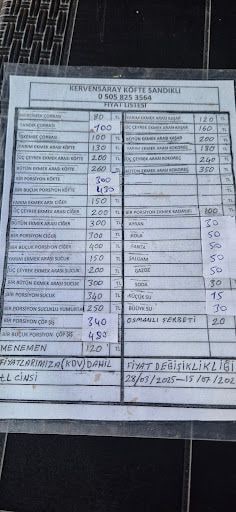 KERVENSARAY KÖFTE SANDIKLI
0 505 825 3564
FİYAT LİSTESİ
MERCİMEK ÇORBASI 80 TL
TANDIR ÇORBASI 100 TL
İŞKEMBE ÇORBASI 100 TL
YARIM EKMEK ARASI KÖFTE 130 TL
ÜÇ ÇEYREK EKMEK ARASI KÖFTE 200 TL
BÜTÜN EKMEK ARASI KÖFTE 260 TL
BİR PORSİYON KÖFTE 300
BİR BUÇUK PORSİYON KÖFTE 430
YARIM EKMEK ARASI CİĞER 150 TL
ÜÇ ÇEYREK EKMEK ARASI CİĞER 200 TL
BÜTÜN EKMEK ARASI CİĞER 300 TL
BİR PORSİYON CİĞER 300 TL
BİR BUÇUK PORSİYON CİĞER 400 TL
YARIM EKMEK ARASI SUCUK 150 TL
ÜÇ ÇEYREK EKMEK ARASI SUCUK 200 TL
BÜTÜN EKMEK ARASI SUCUK 300 TL
BİR PORSİYON SUCUK 340 TL
BİR PORSİYON SUCUKLU YUMURTA 250 TL
BİR PORSİYON ÇÖP ŞİŞ 340
BİR BUÇUK PORSİYON ÇÖP ŞİŞ 480
MENEMEN 120 TL
FİYATLARIMIZA (KDV) DAHİL
TL CİNSİ
YARIM EKMEK ARASI KAŞAR 120 TL
ÜÇ ÇEYREK EKMEK ARASI KAŞAR 160 TL
BÜTÜN EKMEK ARASI KAŞAR 200 TL
YARIM EKMEK ARASI KOKOREÇ 150 TL
ÜÇ ÇEYREK EKMEK ARASI KOKOREÇ 240 TL
BÜTÜN EKMEK ARASI KOKOREÇ 350 TL
BİR PORSİYON EKMEK KADAYIFI 100 TL
AYRAN 30
KOLA 50
FANTA 50
ŞALGAM 50
GAZOZ 50
SODA 30
KÜÇÜK SU 15
BÜYÜK SU 30
OSMANLI ŞERBETİ 20
FİYAT DEĞİŞİKLİKLİĞİ
28/03/2025-15/07/202